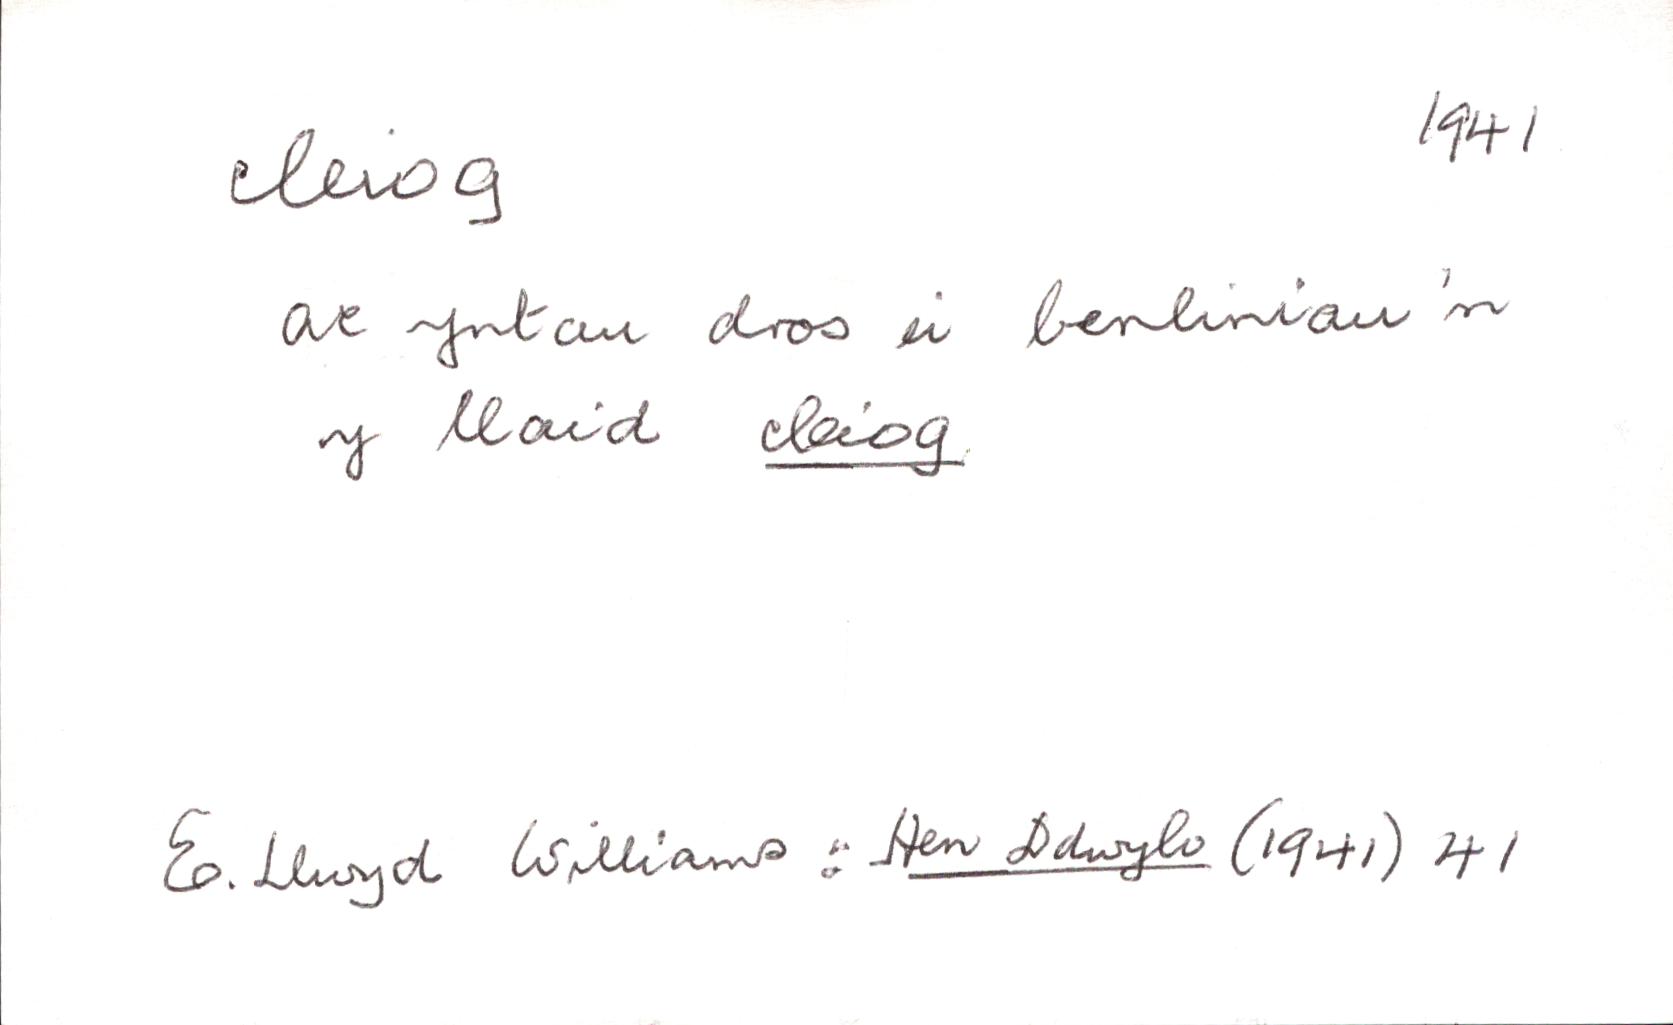 1941
cleiog
ac yntau dros ei benliniau'n
y llaid cleiog
E. Llwyd Williams : Hen Ddwylo (1941) 41